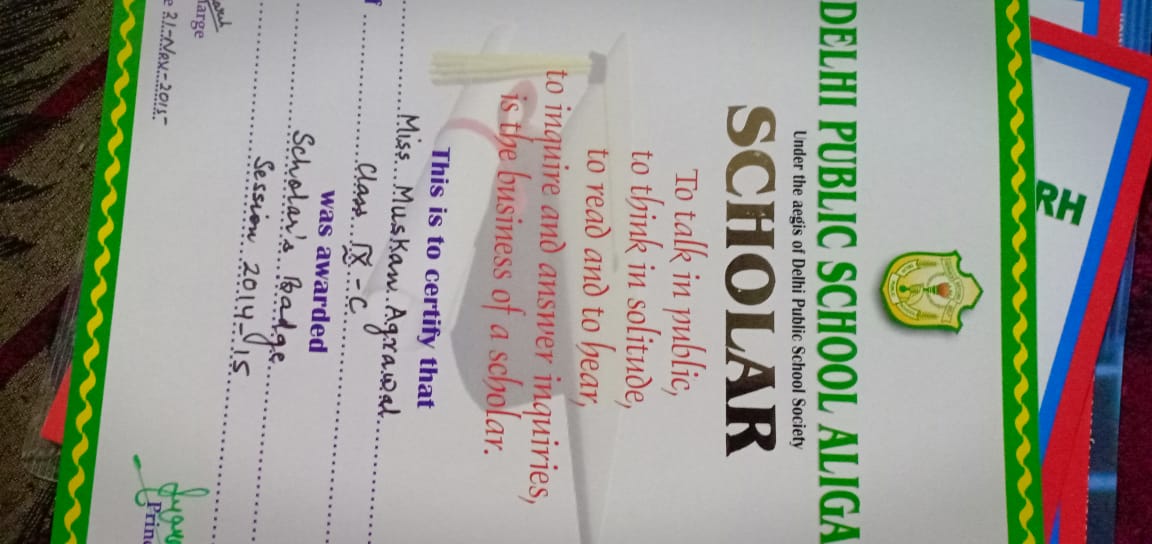 DELHI PUBLIC SCHOOL ALIGA
Under the aegis of Delhi Public School Society
SCHOLAR
To talk in public,
to think in solitude,
to read and to hear,
to inquire and answer inquiries,
is the business of a scholar.
This is to certify that
Miss. Muskan. Agrawal
f Class IX - C
was awarded
Scholar's Badge
Session 2014-15
large
e 21-Nov-2015-
Prin
RH